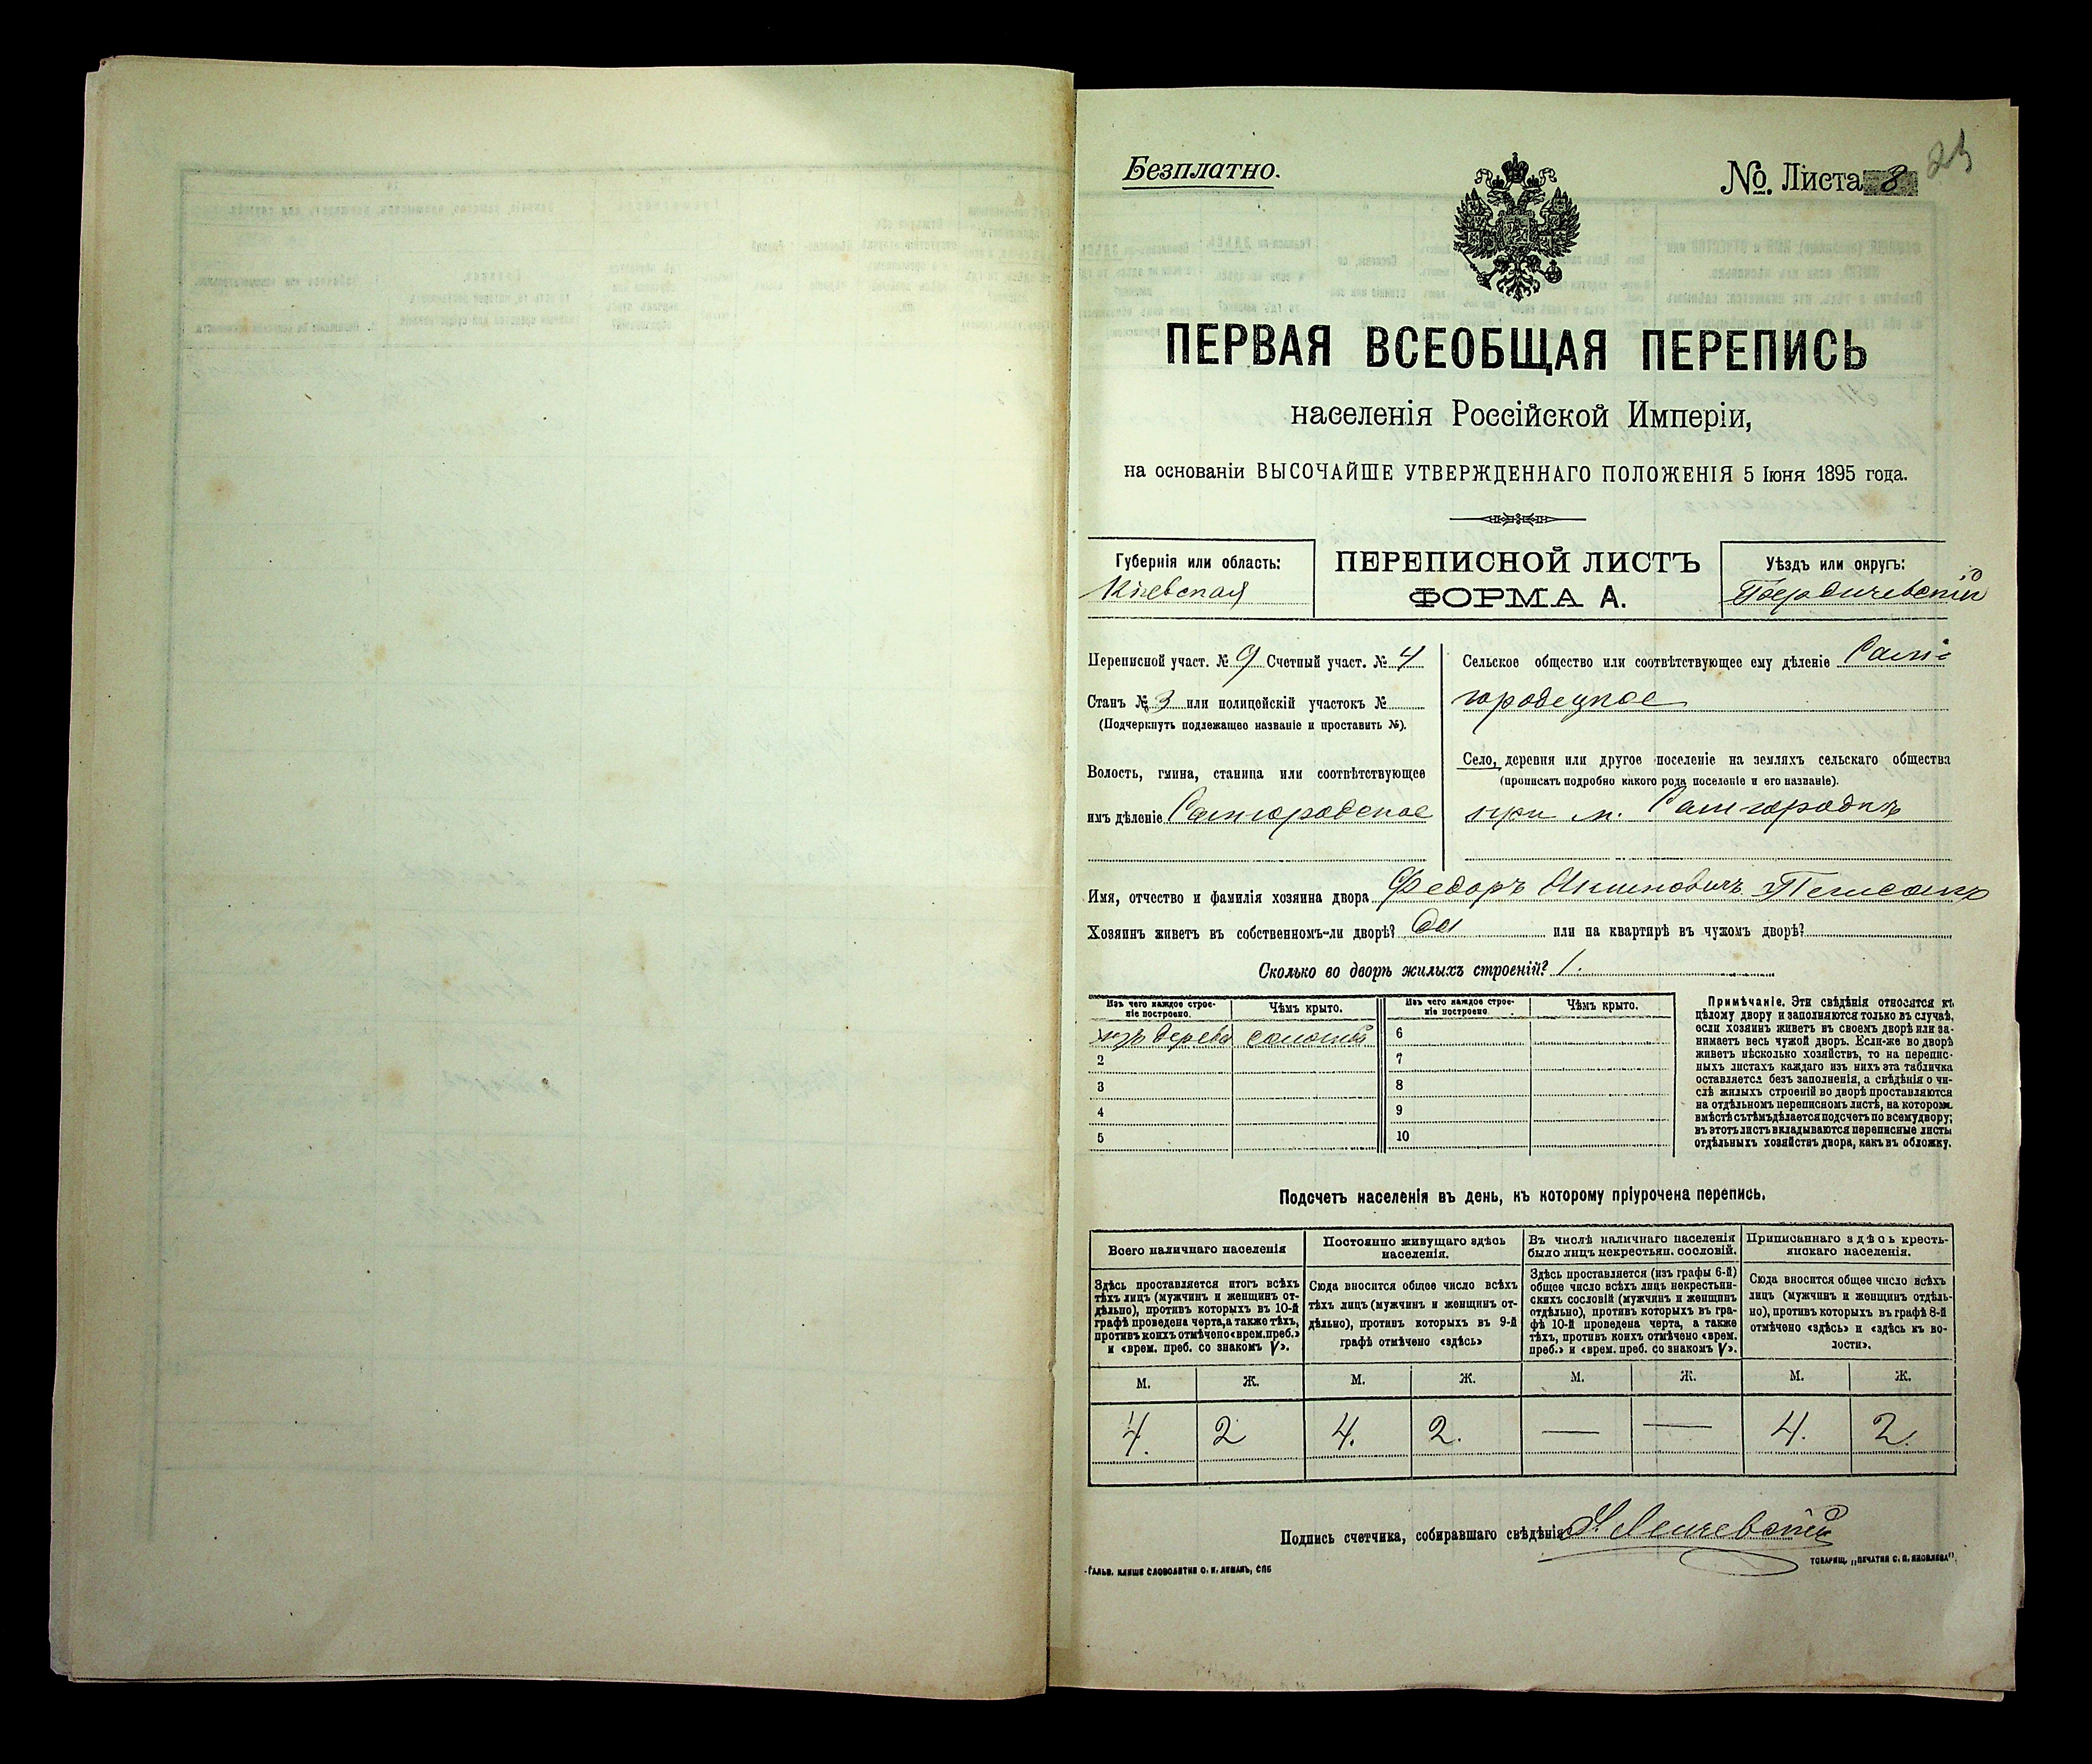 Безплатно.
№ Листа 8
ПЕРВАЯ ВСЕОБЩАЯ ПЕРЕПИСЬ
населенія Россійской Имперіи,
на основаніи ВЫСОЧАЙШЕ УТВЕРЖДЕННАГО ПОЛОЖЕНІЯ 5 Іюня 1895 года.
Губернія или область:
Кіевская
ПЕРЕПИСНОЙ ЛИСТЪ
ФОРМА А.
Уѣздъ или округъ:
Бердичевскій
Переписной участ. № 9 Счетный участ. № 4
Станъ № 3 или полицейскій участокъ №
(Подчеркнуть подлежащее названіе и проставить №).
Волость, гмина, станица или соотвѣтствующее
имъ дѣленіе Самгородское
Сельское общество или соотвѣтствующее ему дѣленіе Самгородецкое
Село, деревня или другое поселеніе на земляхъ сельскаго общества
(прописать подробно какого рода поселеніе и его названіе).
при м. Самгородкѣ
Имя, отчество и фамилія хозяина двора Федоръ
Хозяинъ живетъ въ собственномъ-ли дворѣ? да или на квартирѣ въ чужомъ дворѣ?
Сколько во дворѣ жилыхъ строеній? 1.
Изъ чего каждое строеніе построено.
Чѣмъ крыто.
Изъ чего каждое строеніе построено
Чѣмъ крыто.
изъ дерева соломой 6
2 7
3 8
4 9
5 10
Примѣчаніе. Эти свѣдѣнія относятся къ
цѣлому двору и заполняются только въ случаѣ,
если хозяинъ живетъ въ своемъ дворѣ или за-
нимаетъ весь чужой дворъ. Если-же во дворѣ
живетъ нѣсколько хозяйствъ, то на перепис-
ныхъ листахъ каждаго изъ нихъ эта табличка
оставляется безъ заполненія, а свѣдѣнія о чи-
слѣ жилыхъ строеній во дворѣ проставляются
на отдѣльномъ переписномъ листѣ, на которомъ
вмѣстѣ съ тѣмъ дѣлается подсчетъ по всему двору;
въ этотъ листъ вкладываются переписные листы
отдѣльныхъ хозяйствъ двора, какъ въ обложку.
Подсчетъ населенія въ день, къ которому пріурочена перепись.
Всего наличнаго населенія
Здѣсь проставляется итогъ всѣхъ
тѣхъ лицъ (мужчинъ и женщинъ от-
дѣльно), противъ которыхъ въ 10-й
графѣ проведена черта, а также тѣхъ,
противъ коихъ отмѣчено «врем. преб.»
и «врем. преб. со знакомъ V».
Постоянно живущаго здѣсь
населенія.
Сюда вносится общее число всѣхъ
тѣхъ лицъ (мужчинъ и женщинъ от-
дѣльно), противъ которыхъ въ 9-й
графѣ отмѣчено «здѣсь»
Въ числѣ наличнаго населенія
было лицъ некрестьян. сословій.
Здѣсь проставляется (изъ графы 6-й)
общее число всѣхъ лицъ некрестьян-
скихъ сословій (мужчинъ и женщинъ
отдѣльно), противъ которыхъ въ гра-
фѣ 10-й проведена черта, а также
тѣхъ, противъ коихъ отмѣчено «врем.
преб.» и «врем. преб. со знакомъ V».
Приписаннаго здѣсь кресть-
янскаго населенія.
Сюда вносится общее число всѣхъ
лицъ (мужчинъ и женщинъ отдѣль-
но), противъ которыхъ въ графѣ 8-й
отмѣчено «здѣсь» и «здѣсь къ во-
лости».
М. Ж. М. Ж. М. Ж. М. Ж.
4. 2 4. 2. — — 4. 2.
Подпись счетчика, собиравшаго свѣдѣнія
ГАЛЬВ. КЛИШЕ СЛОВОЛИТНИ О. И. ЛЕМАНЪ, СПБ
ТОВАРИЩ. „ПЕЧАТНЯ С. П. ЯКОВЛЕВА".